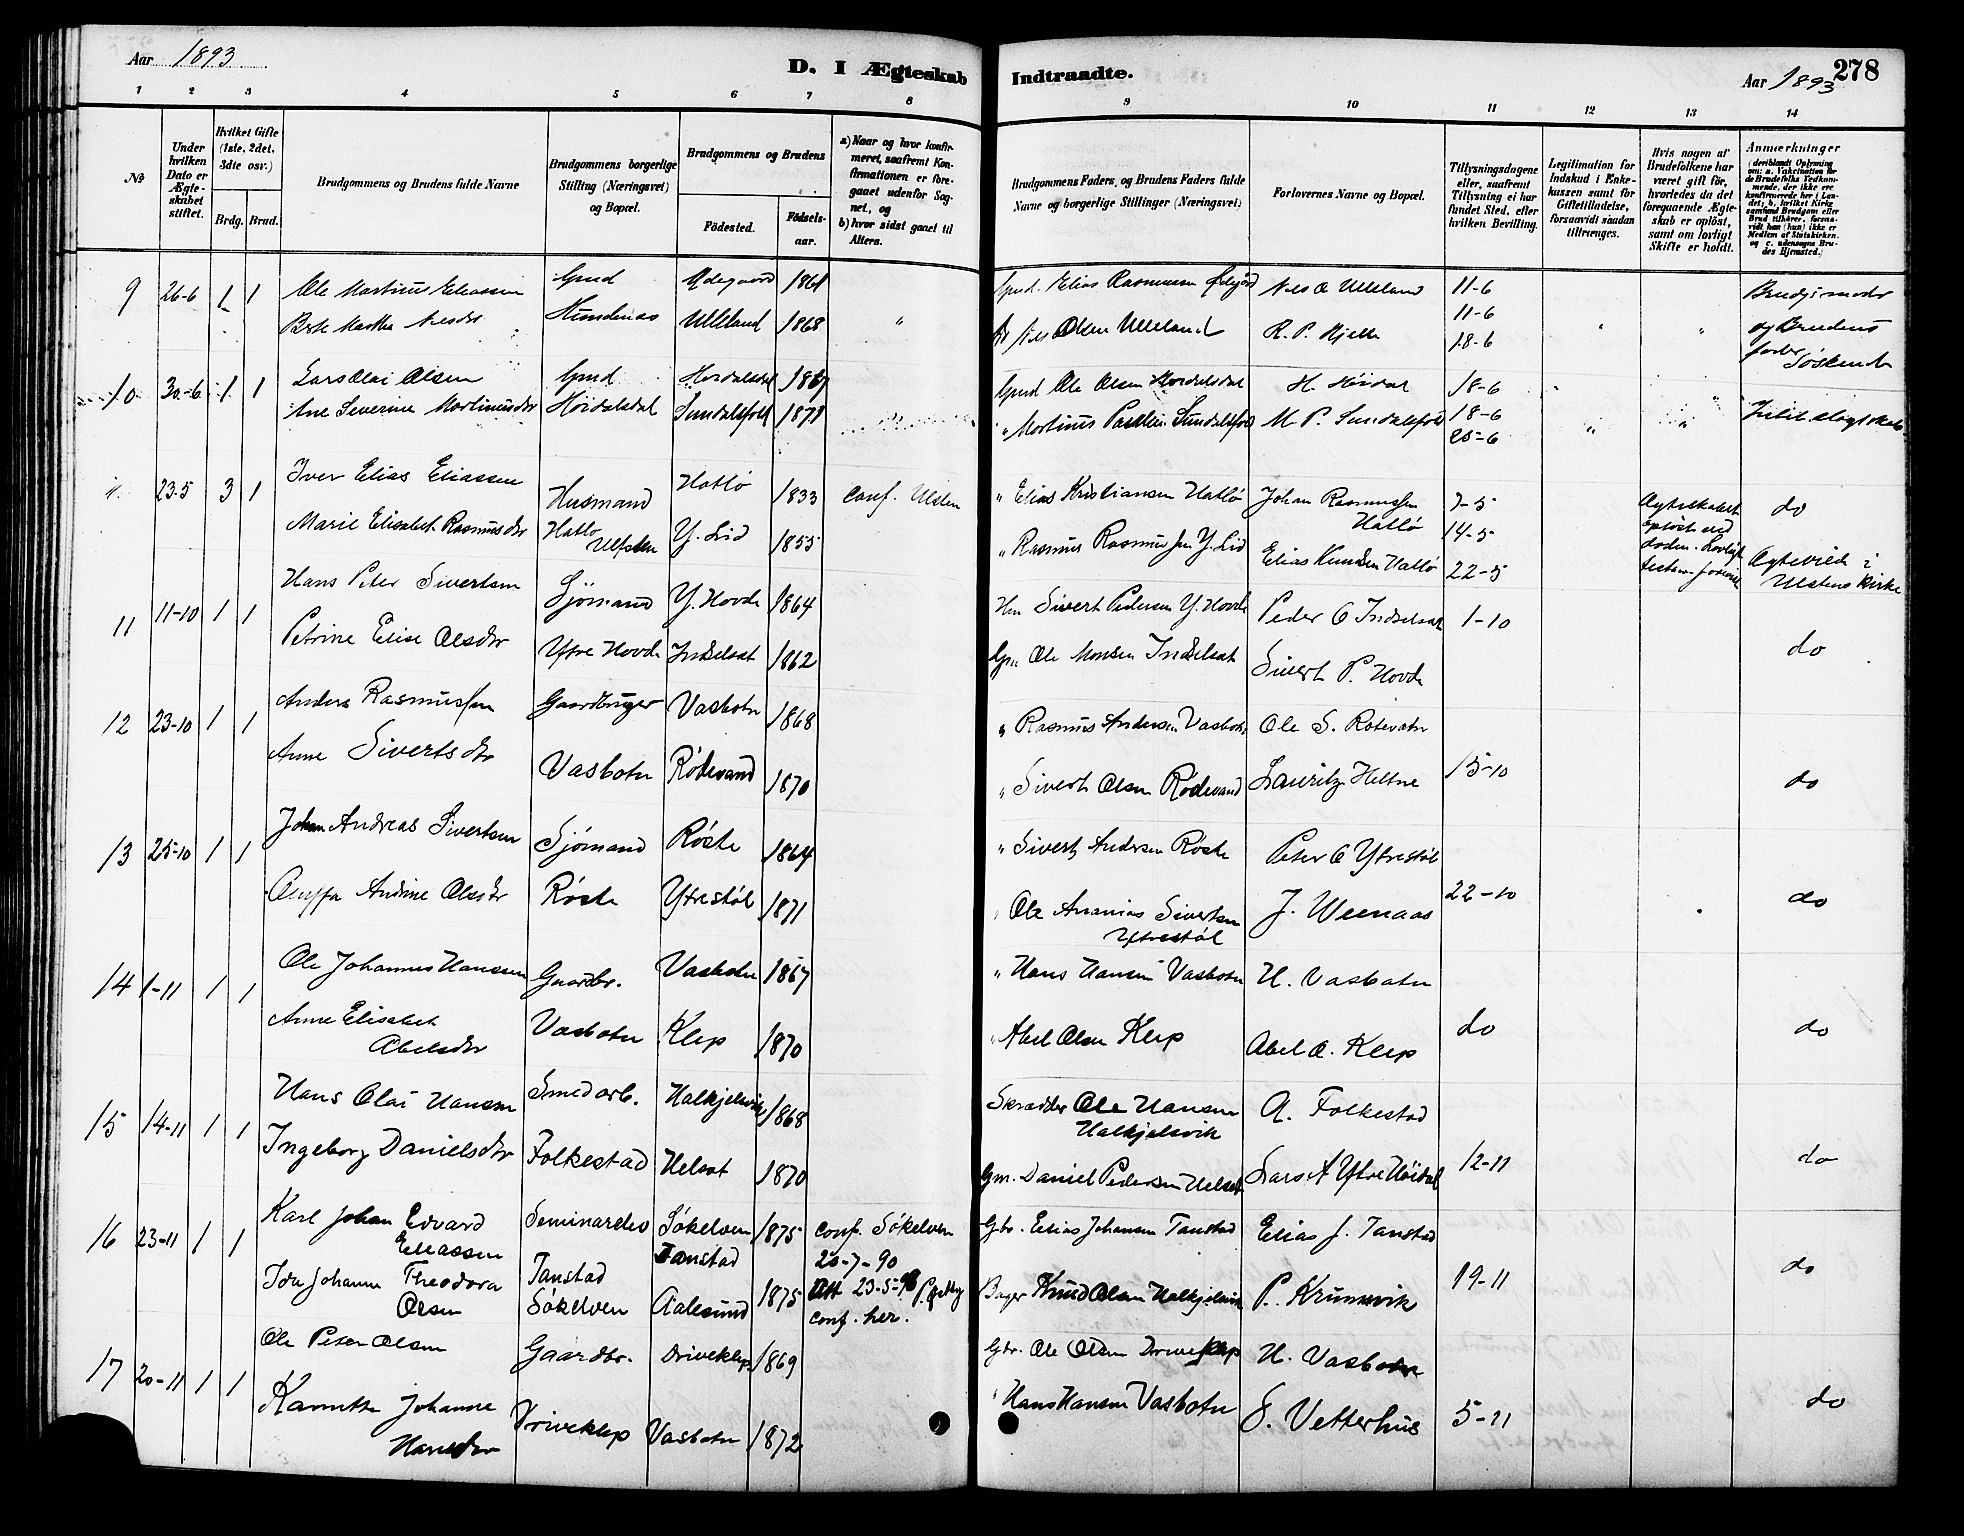 Aar 1893
D. I Ægteskab Indtraadte.
Aar 1893
278
1 2 3 4 5 6 7 8 9 10 11 12 13 14
No
Under hvilken Dato er Ægteskabet stiftet.
Hvilket Gifte (1ste, 2det, 3dte osv.)
Brdg. Brud.
Brudgommens og Brudens fulde Navne
Brudgommens borgerlige Stilling (Næringsvei) og Bopæl.
Brudgommens og Brudens
Fødested.
Fødselsaar.
a) Naar og hvor konfirmeret, saafremt Konfirmationen er foregaaet udenfor Sognet, og
b) hvor sidst gaaet til Alters.
Brudgommens Faders, og Brudens Faders fulde Navne og borgerlige Stillinger (Næringsvei)
Forlovernes Navne og Bopæl.
Tillysningsdagene eller, saafremt Tillysning ei har fundet Sted, efter hvilken Bevilling.
Legitimation for Indskud i Enkekassen samt for Giftetilladelse, forsaavidt saadan tiltrænges.
Hvis nogen af Brudefolkene har været gift før, hvorledes da det foregaaende Ægteskab er opløst, samt om lovligt Skifte er holdt.
Anmærkninger
(deriblandt Oplysning om: a. Vakcination for de Brudefolks Vedkommende, der ikke ere konfirmerede her i Landet; b. hvilket Kirkesamfund Brudgom eller Brud tilhører, forsaavidt han (hun) ikke er Medlem af Statskirken, og c. udensogns Brudes Hjemsted.)
9 26-6 1 1 Ole Martinus Eliassen Gmd Ødegaard 1861 Gmd. Elias Rasmussen Nils O Ulleland 11-6 Brudgs moder
Berte Martha Nilsdtr Hundenes Ulleland 1868 " Nils Olsen Ulleland R. P. Hjelle 11-6 " " og Brudens
18-6 fader Søskende
10 30-6 1 1 Lars Olai Olsen Gmd Høidalsdal 1867 Gmd Ole Olsen Høidalsdal H. Høidal 18-6
Ane Severine Martinusdtr Høidalsdal Sundalsfold 1871 " Martinus Paulsen Sundalsfold M. P. Sundalsfold 18-6 " " Intet slægtskab
25-6
23-5 3 1 Iver Elias Eliassen Husmand Hatlø 1833 Conf. Ulsten " Elias Kristiansen Hatlø Johan Rasmussen Hatlø 7-5 Ægteskabet do
Marie Elisabet Rasmusdtr Hatlø Ulsten Y. Lid 1855 " Rasmus Rasmussen Y. Lid Elias Knudsen Hatlø 14-5 opløst ved døden. Lovligt
22-5 Ægteviet i Ulstens Kirke
11 11-10 1 1 Hans Peter Sivertsen Sjømand Y. Hovde 1864 Hm Sivert Pedersen Y. Hovde Peder O Indselset 1-10
Petrine Elise Olsdtr Ytre Hovde Indselset 1862 Gm Ole Monsen Indselset Sivert P. Hovde do
12 23-10 1 1 Anders Rasmussen Gaardbruger Vasbotn 1868 " Rasmus Andersen Vasbotn Ole S. Rotevatn
Anne Sivertsdtr Vasbotn Rødevand 1870 " Sivert Olsen Rødevand Lauritz Heltne 15-10 do
13 25-10 1 1 Johan Andreas Sivertsen Sjømand Røste 1864 " Sivert Andersen Røste Peter O Ytrestøl
Oluffa Andrine Olsdtr Røste Ytrestøl 1871 " Ole Ananias Sivertsen Ytrestøl J. Weenaas 22-10 do
14 1-11 1 1 Ole Johannes Hanssen Gaardbr. Vasbotn 1867 " Hans Hansen Vasbotn H. Vasbotn
Anne Elisabet Abelsdtr Vasbotn Klep 1870 " Abel Olsen Klep Abel O. Klep do do
15 14-11 1 1 Hans Olai Hansen Smedarb. Halkjelsvik 1868 Skrædder Ole Hansen Halkjelsvik A. Folkestad
Ingeborg Danielsdtr Folkestad Helset 1870 Gm. Daniel Pedersen Helset Lars A Ytre Høidal 12-11 do
16 23-11 1 1 Karl Johan Edvard Eliassen Seminarelev Søkelven Tanstad 1875 Conf. Søkelven 20-7-90 Gbr. Elias Johansen Tanstad Elias J. Tanstad
Ida Johanne Theodora Olsen Tanstad Søkelven Aalesund 1875 Att 23-5-93 conf. her. Bager Knud Olsen Halkjelsvik P. Krumsvik 19-11 do
17 20-11 1 1 Ole Peter Olsen Gaardbr. Driveklep 1869 Gbr. Ole Olsen Driveklep H. Vasbotn
Karnette Johanne Hansdtr Driveklep Vasbotn 1872 " Hans Hansen Vasbotn S. Vetterhus 5-11 do